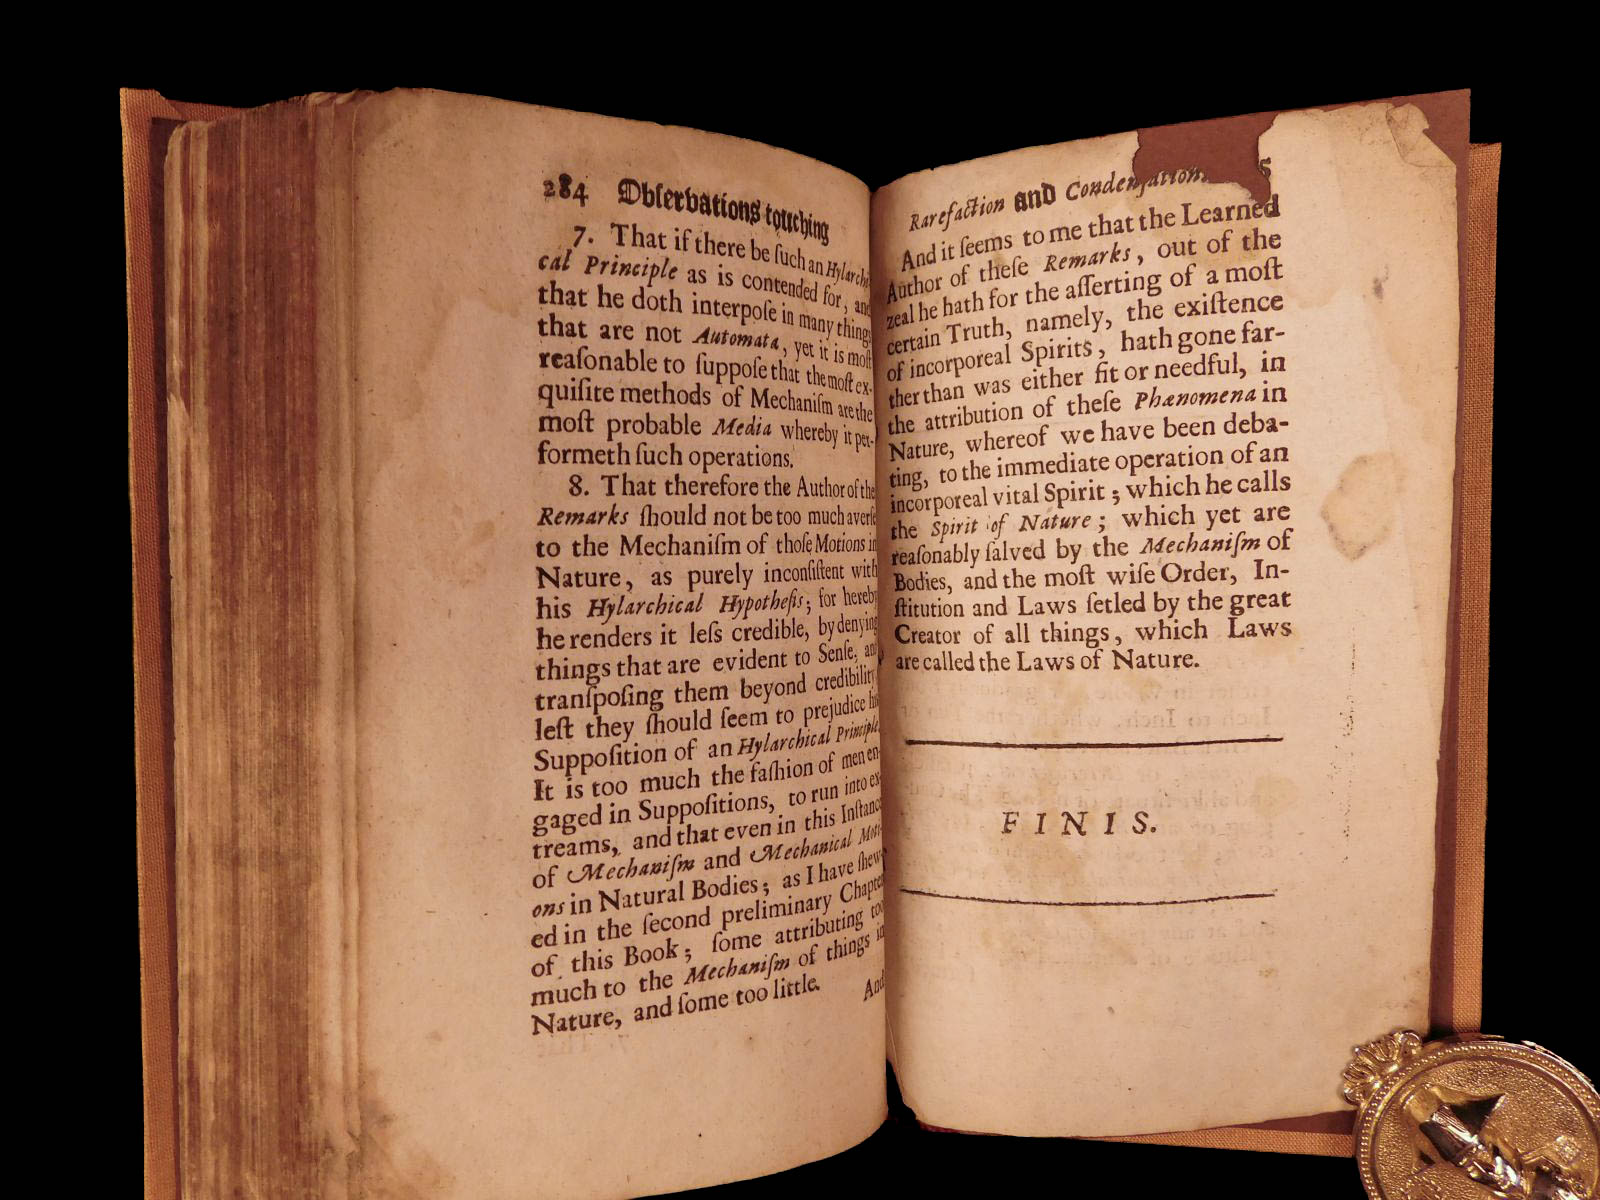 284 Obſervations touching
7. That if there be ſuch an Hylarchi-
cal Principle as is contended for, and
that he doth interpoſe in many things
that are not Automata, yet it is moſt
reaſonable to ſuppoſe that the moſt ex-
quiſite methods of Mechaniſm are the
moſt probable Media whereby it per-
formeth ſuch operations.
8. That therefore the Author of the
Remarks ſhould not be too much averſe
to the Mechaniſm of thoſe Motions in
Nature, as purely inconſiſtent with
his Hylarchical Hypotheſis; for hereby
he renders it leſs credible, by denying
things that are evident to Senſe, and
tranſpoſing them beyond credibility,
leſt they ſhould ſeem to prejudice his
Suppoſition of an Hylarchical Principle.
It is too much the faſhion of men en-
gaged in Suppoſitions, to run into ex-
treams, and that even in this Inſtance
of Mechaniſm and Mechanical Moti-
ons in Natural Bodies; as I have ſhew-
ed in the ſecond preliminary Chapter
of this Book; ſome attributing too
much to the Mechaniſm of things in
Nature, and ſome too little.
And
Rarefaction and Condenſation.
And it ſeems to me that the Learned
Author of theſe Remarks, out of the
zeal he hath for the aſſerting of a moſt
certain Truth, namely, the exiſtence
of incorporeal Spirits, hath gone far-
ther than was either fit or needful, in
the attribution of theſe Phænomena in
Nature, whereof we have been deba-
ting, to the immediate operation of an
incorporeal vital Spirit; which he calls
the Spirit of Nature; which yet are
reaſonably ſalved by the Mechaniſm of
Bodies, and the moſt wiſe Order, In-
ſtitution and Laws ſetled by the great
Creator of all things, which Laws
are called the Laws of Nature.
FINIS.